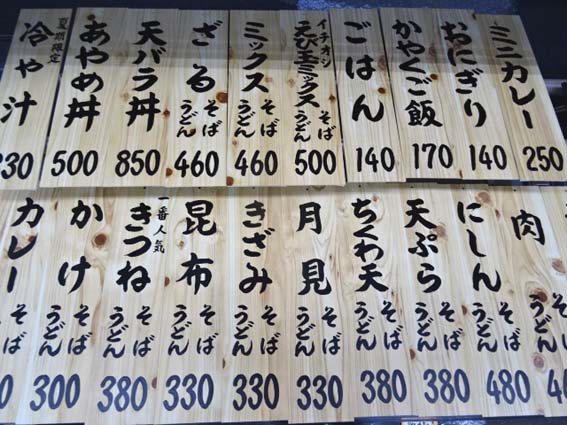 ミニカレー
250
おにぎり
140
かやくご飯
170
ごはん
140
イチオシ
えび玉ミックス
そば
うどん
500
ミックス
そば
うどん
460
ざる
そば
うどん
460
天バラ丼
850
あやめ丼
500
夏期限定
冷や汁
30
肉
そば
うどん
にしん
そば
うどん
480
天ぷら
そば
うどん
380
ちくわ天
そば
うどん
380
月見
そば
うどん
330
きざみ
そば
うどん
330
昆布
そば
うどん
330
一番人気
きつね
そば
うどん
380
かけ
そば
うどん
300
カレー